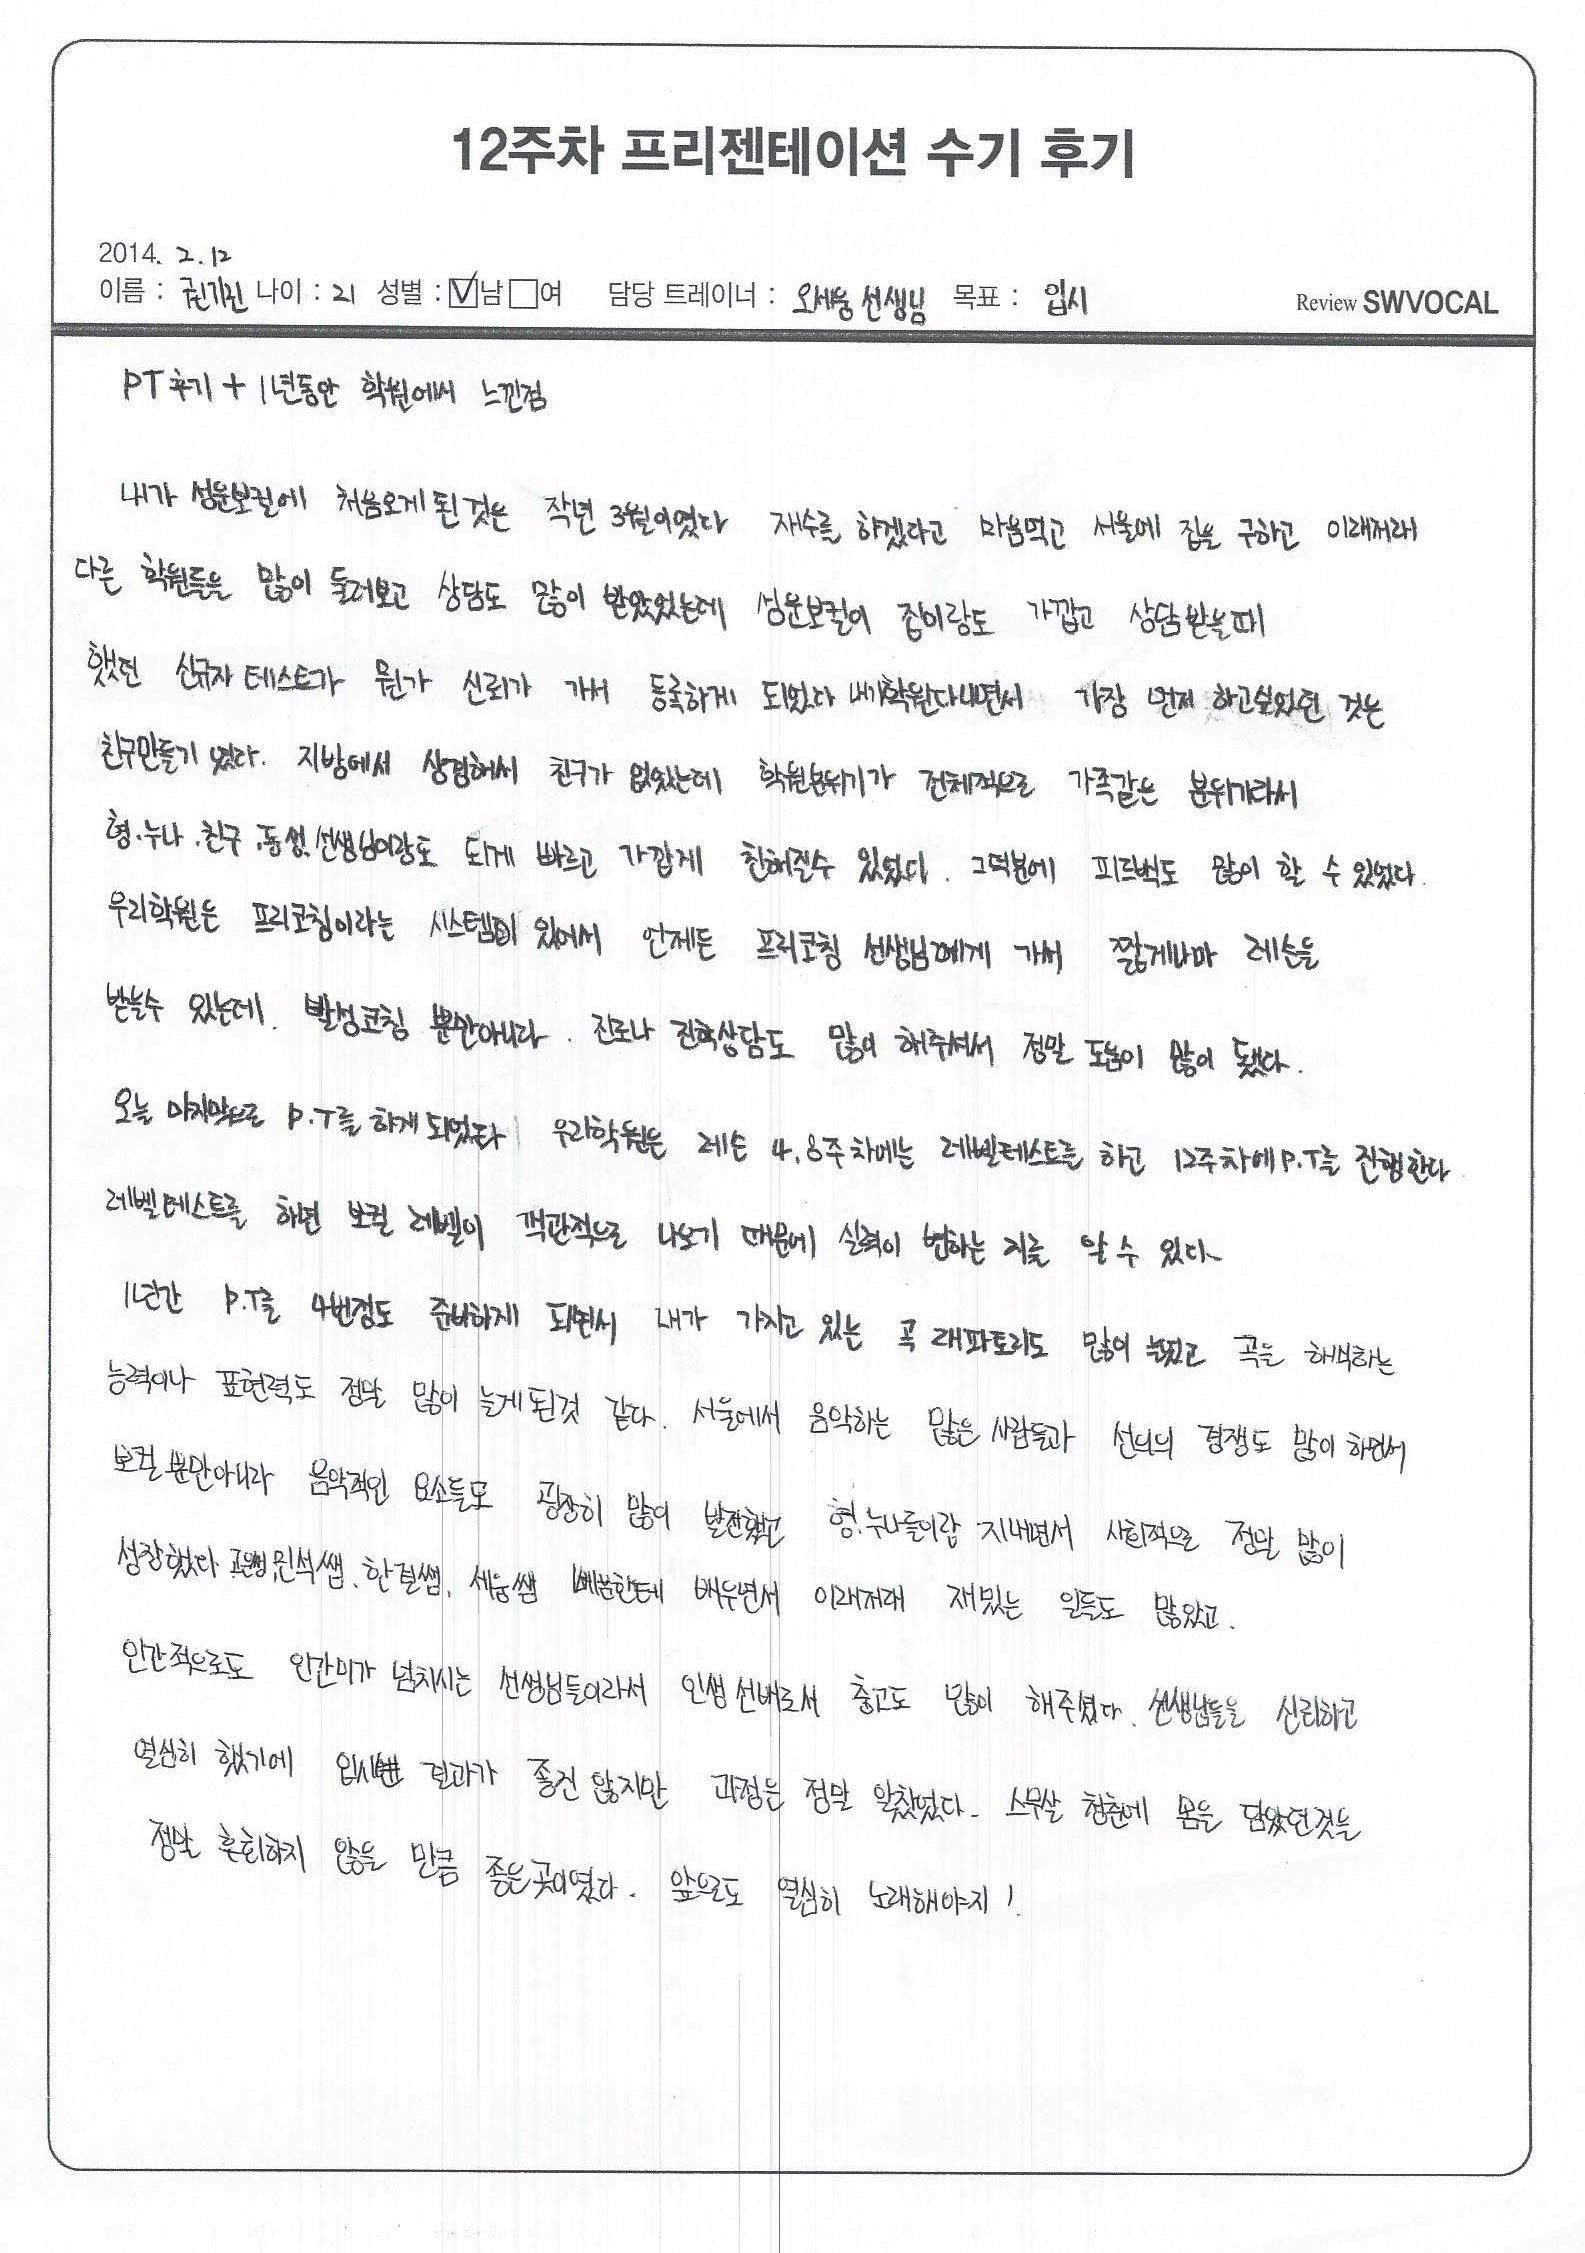 12주차 프리젠테이션 수기 후기
2014. 2.12
이름 : 권기진 나이 : 21 성별 : ☑남 □여 담당 트레이너 : 오세웅 선생님 목표 : 입시 Review SWVOCAL
PT후기 + 1년동안 학원에서 느낀점
내가 성운보컬에 처음오게 된 것은 작년 3월이였다 재수를 하겠다고 마음먹고 서울에 집을 구하고 이래저래
다른 학원들을 많이 둘러보고 상담도 많이 받았었는데 성운보컬이 집이랑도 가깝고 상담받을때
했던 신규자 테스트가 뭔가 신뢰가 가서 등록하게 되었다 내가학원다니면서 가장 먼저 하고싶었던 것은
친구만들기 였다. 지방에서 상경해서 친구가 없었는데 학원분위기가 전체적으로 가족같은 분위기라서
형.누나.친구.동생.선생님이랑도 되게 빠르고 가깝게 친해질수 있었다. 그덕분에 피드백도 많이 할 수 있었다.
우리학원은 프리코칭이라는 시스템이 있어서 언제든 프리코칭 선생님에게 가서 짧게나마 레슨을
받을수 있는데. 발성코칭 뿐만아니라. 진로나 진학상담도 많이 해주셔서 정말 도움이 많이 됐다.
오늘 마지막으로 P.T를 하게 되었다 우리학원은 레슨 4,8주차에는 레벨테스트를 하고 12주차에 P.T를 진행한다
레벨테스트를 하면 보컬 레벨이 객관적으로 나오기 때문에 실력이 변하는 지를 알 수 있다.
1년간 P.T를 4번정도 준비하게 되면서 내가 가지고 있는 곡 래파토리도 많이 늘었고 곡을 해석하는
능력이나 표현력도 정말 많이 늘게 된것 같다. 서울에서 음악하는 많은 사람들과 선의의 경쟁도 많이 하면서
보컬 뿐만아니라 음악적인 요소들도 굉장히 많이 발전했고 형.누나들이랑 지내면서 사회적으로 정말 많이
성장했다 민석쌤, 한결쌤, 세웅쌤 배우면서 이래저래 재밌는 일들도 많았고.
인간적으로도 인간미가 넘치시는 선생님들이라서 인생 선배로서 충고도 많이 해주셨다. 선생님들을 신뢰하고
열심히 했기에 입시 결과가 좋건 않지만 과정은 정말 알찼었다. 스무살 청춘에 몸을 담았던것을
정말 후회하지 않을 만큼 좋은 곳이였다. 앞으로도 열심히 노래해야지!